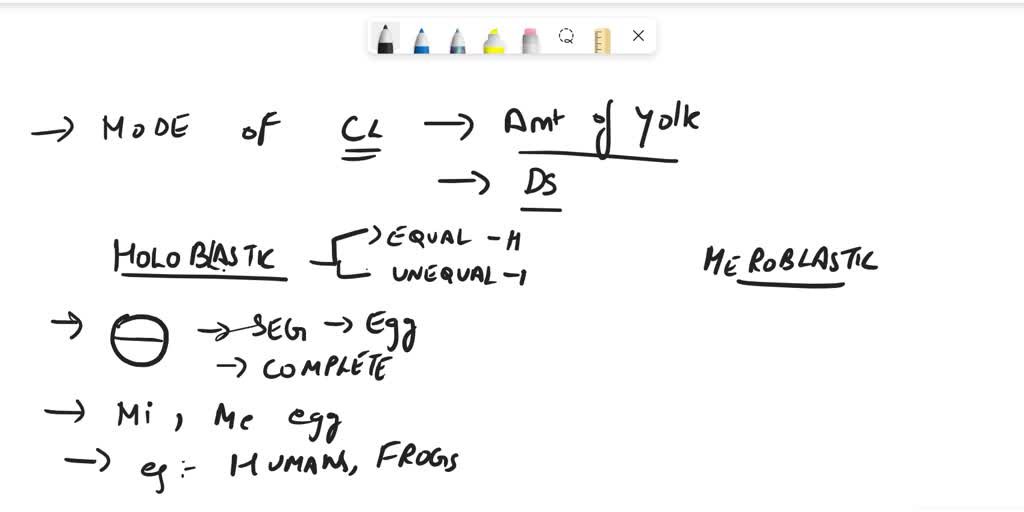 → MODE OF CL → Amt of Yolk
→ DS
HOLOBLASTIC → EQUAL - H
UNEQUAL - I
MEROBLASTIC
→ → SEG → Egg
→ COMPLETE
→ Mi, Me egg
→ eg :- HUMANS, FROGS